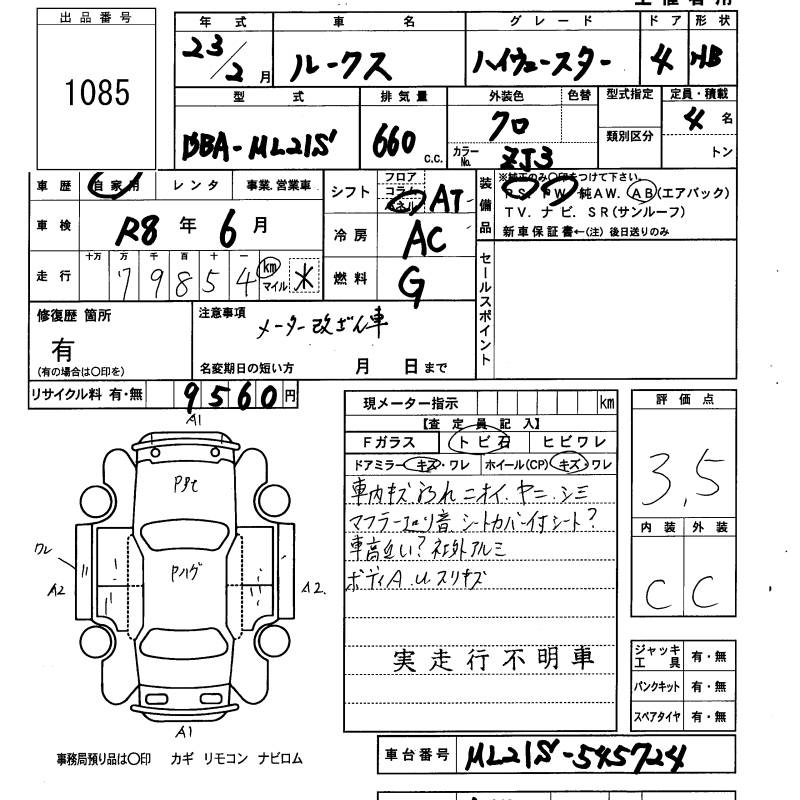 出品番号
1085
年式 車名 グレード ドア 形状
23/2月 ルークス ハイウェースター 4 HB
型式 排気量 外装色 色替 型式指定 定員・積載
DBA-ML21S 660 c.c. クロ 類別区分 4名
カラーNo. ZJ3 トン
車歴 自家用 レンタ 事業.営業車
シフト フロア コラム パネル AT
装備品 ※純正のみ〇印をつけて下さい。
P.S. P.W. 純A.W. A.B(エアバック)
T.V. ナビ. S.R(サンルーフ)
新車保証書←(注) 後日送りのみ
車検 R8年 6月
冷房 AC
走行 十万 万 千 百 十 一
79854 km マイル ※
燃料 G
セールスポイント
修復歴 箇所
有
(有の場合は〇印を)
注意事項
メーター改ざん車
名変期日の短い方 月 日まで
リサイクル料 有・無 9560円
現メーター指示 km
【査定員記入】
Fガラス トビ石 ヒビワレ
ドアミラー キズ・ワレ ホイール(CP) キズ・ワレ
車内キズ 汚れ ニオイ. ヤニ. シミ
マフラー 音 シートカバー付シート?
車高 い? 社外アルミ
ボディA.U スリキズ
実走行不明車
評価点
3.5
内装 外装
C C
A1
ワレ
A2
A2.
Pハゲ
A1
ジャッキ工具 有・無
パンクキット 有・無
スペアタイヤ 有・無
事務局預り品は〇印 カギ リモコン ナビロム
車台番号 ML21S-545724